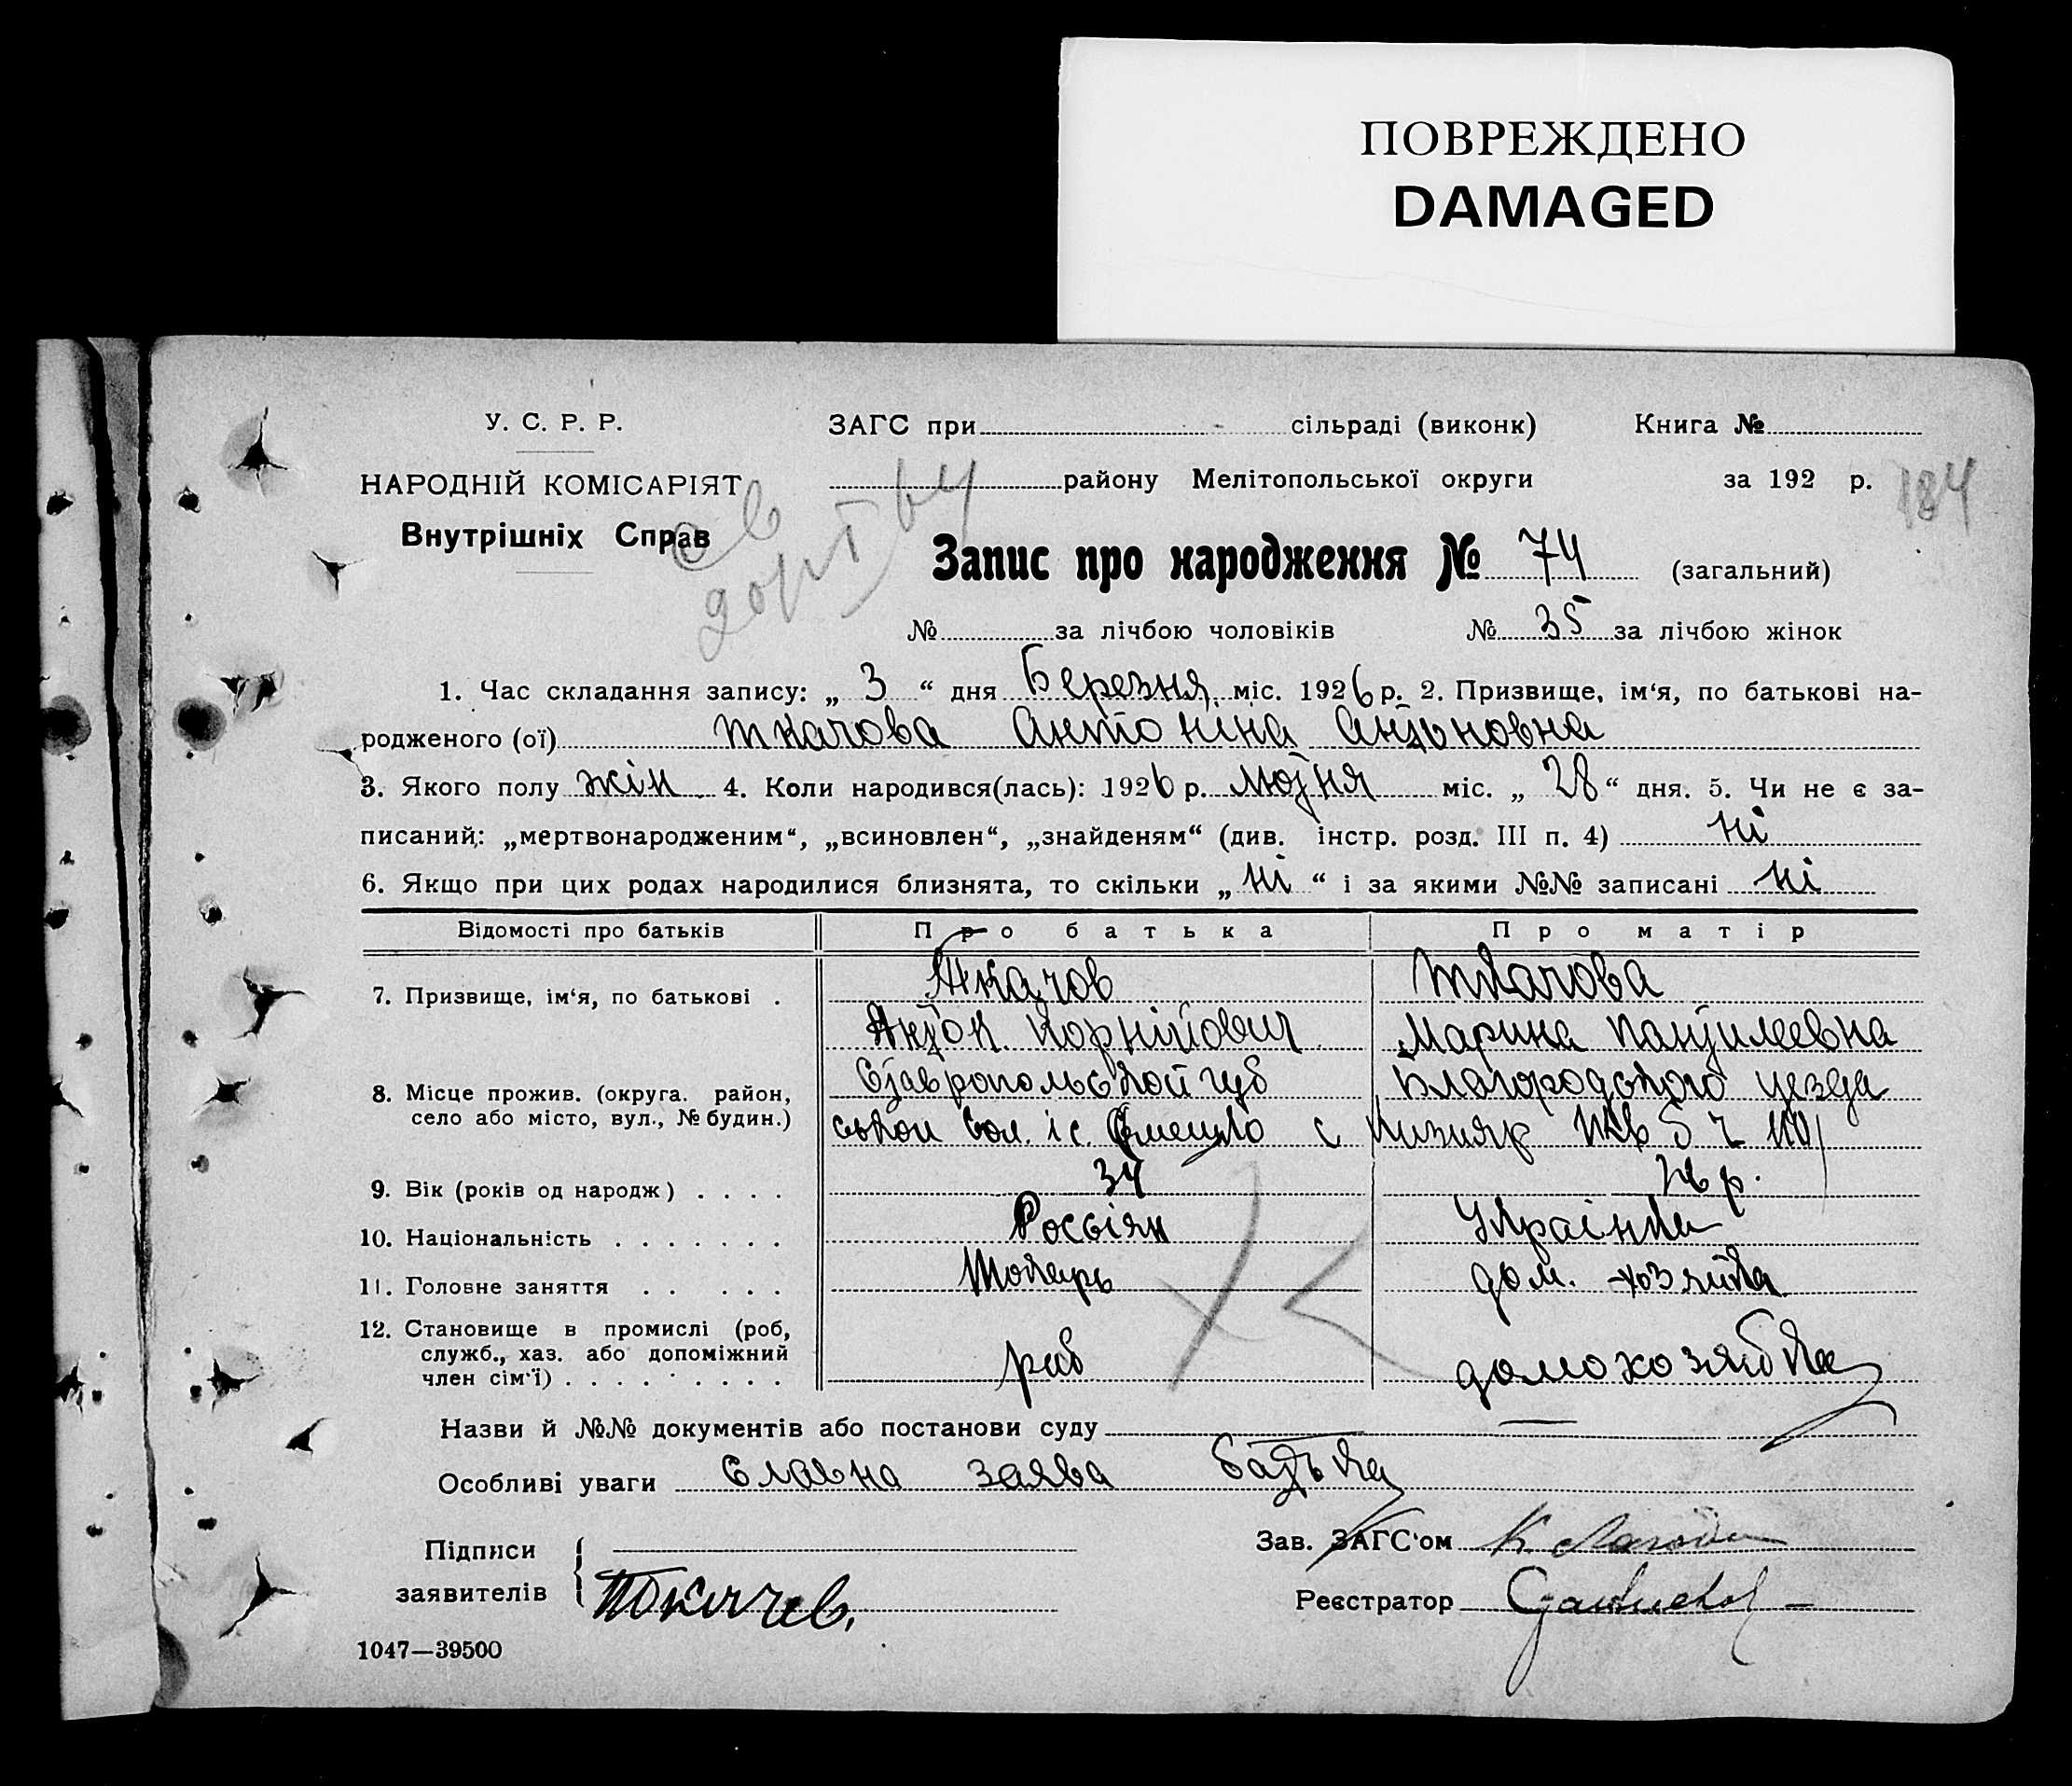 ПОВРЕЖДЕНО
DAMAGED
У. С. Р. Р.
ЗАГС при сільраді (виконк) Книга №
НАРОДНІЙ КОМІСАРІЯТ
району Мелітопольської округи за 192 р. 184
Внутрішніх Справ
Запис про народження № 74 (загальний)
№ за лічбою чоловіків № 35 за лічбою жінок
1. Час складання запису: „ 3 “ дня Березня міс. 1926 р. 2. Призвище, ім‘я, по батькові на-
родженого (ої) Ткачова Антоніна Антоновна
3. Якого полу жін 4. Коли народився(лась): 1926 р. Лютня міс. „ 28 “ дня. 5. Чи не є за-
писаний: „мертвонародженим“, „всиновлен“, „знайденям“ (див. інстр. розд. III п. 4) ні
6. Якщо при цих родах народилися близнята, то скільки „ ні “ і за якими №№ записані ні
Відомості про батьків Про батька Про матір
7. Призвище, ім‘я, по батькові . Ткачов Ткачова
Антон Корнійович Марина Пантилеевна
8. Місце прожив. (округа. район, село або місто, вул., № будин.) Ставропольской губ Благородского уезда
ской вол. і с. с Кизияр
9. Вік (років од народж) . . . . 34 26 р.
10. Національність . . . . . . . Россіян Українка
11. Головне заняття . . . . . Токарь дом. хозяйка
12. Становище в промислі (роб,
служб., хаз. або допоміжний
член сім‘ї) . . . . . . . . . раб домохозяйка
Назви й №№ документів або постанови суду —
Особливі уваги Славна заява батька
Підписи
Зав. ЗАГС‘ом К.
заявителів Ткачев.
Реєстратор
1047—39500